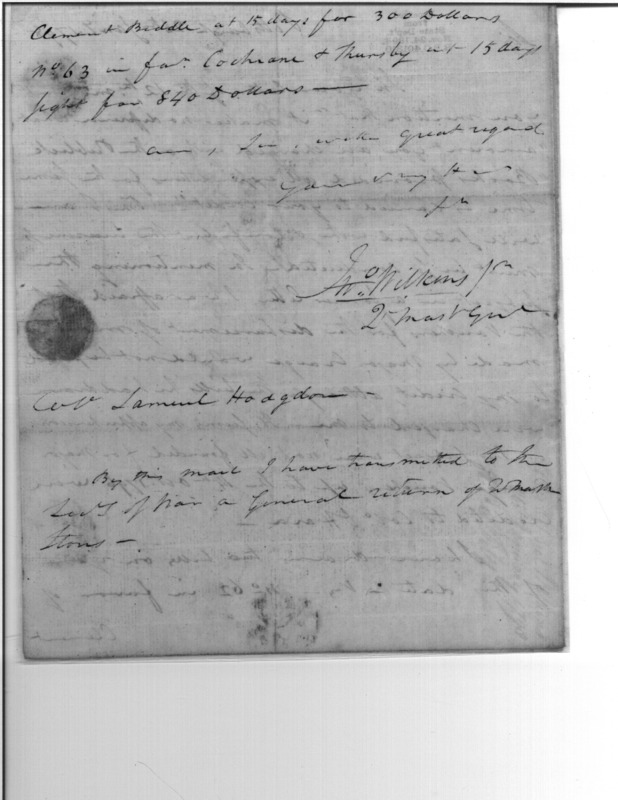 Clement Biddle at 15 days for 300 Dollars
No 63 in favr. Cochrane & Thursby at 15 days
sight for 840 Dollars —
am, Sir, with great regard
Your
Jno. Wilkins Jr
Qr Mastr Genl
Colo. Samuel Hodgdon
By this mail I have transmitted to the
Secy of War a General return of Qr Mastr
Stores —